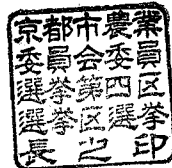 京都市農業
委員会委員
選挙第四区
選挙区選挙
長之印